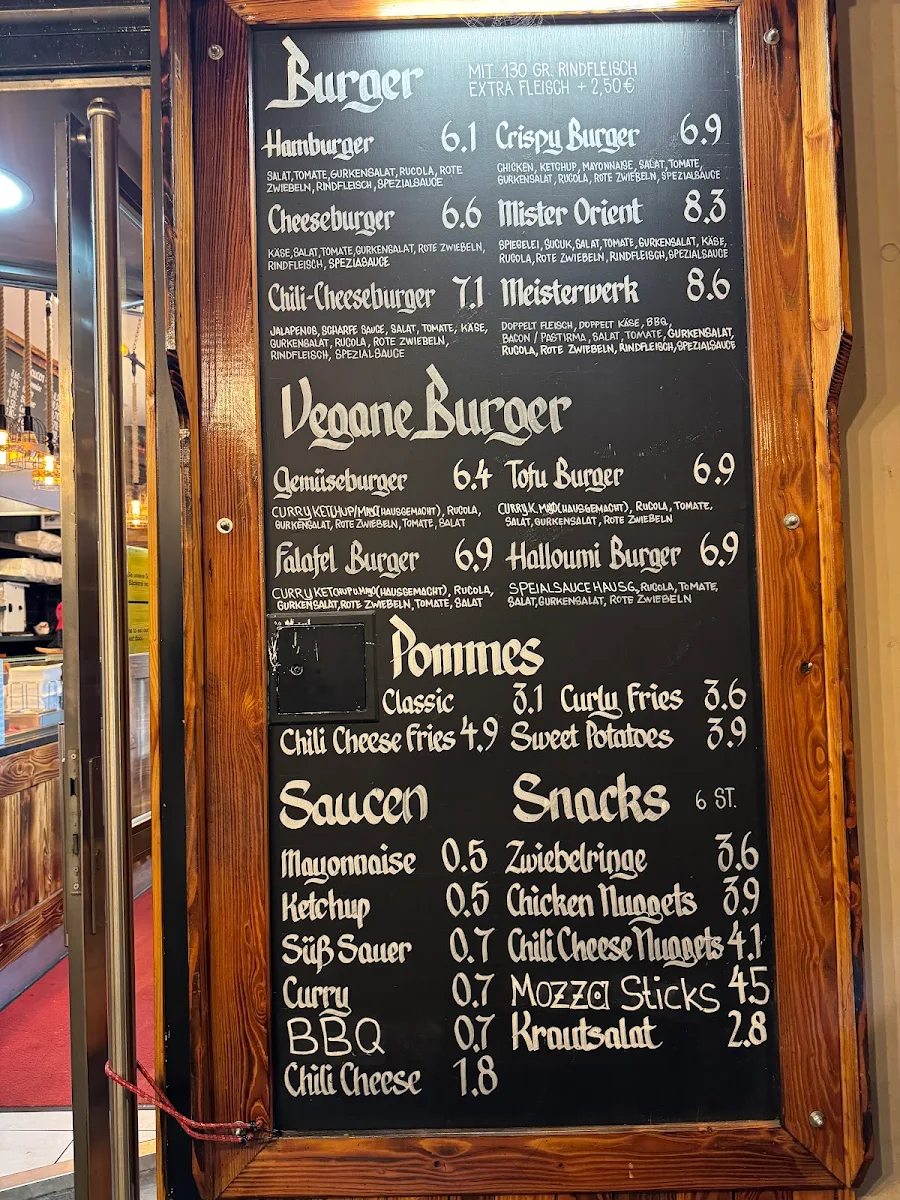 Burger
MIT 130 GR. RINDFLEISCH
EXTRA FLEISCH + 2,50 €
Hamburger 6.1
SALAT, TOMATE, GURKENSALAT, RUCOLA, ROTE
ZWIEBELN, RINDFLEISCH, SPEZIALSAUCE
Crispy Burger 6.9
CHICKEN, KETCHUP, MAYONNAISE, SALAT, TOMATE,
GURKENSALAT, RUCOLA, ROTE ZWIEBELN, SPEZIALSAUCE
Cheeseburger 6.6
KÄSE, SALAT, TOMATE, GURKENSALAT, ROTE ZWIEBELN,
RINDFLEISCH, SPEZIASAUCE
Mister Orient 8.3
SPIEGELEI, SUCUK, SALAT, TOMATE, GURKENSALAT, KÄSE,
RUCOLA, ROTE ZWIEBELN, RINDFLEISCH, SPEZIALSAUCE
Chili-Cheeseburger 7.1
JALAPENOS, SCHARFE SAUCE, SALAT, TOMATE, KÄSE,
GURKENSALAT, RUCOLA, ROTE ZWIEBELN,
RINDFLEISCH, SPEZIALSAUCE
Meisterwerk 8.6
DOPPELT FLEISCH, DOPPELT KÄSE, BBQ,
BACON / PASTIRMA, SALAT, TOMATE, GURKENSALAT,
RUCOLA, ROTE ZWIEBELN, RINDFLEISCH, SPEZIALSAUCE
Vegane Burger
Gemüseburger 6.4
CURRYKETCHUP/MAYO (HAUSGEMACHT), RUCOLA,
GURKENSALAT, ROTE ZWIEBELN, TOMATE, SALAT
Tofu Burger 6.9
CURRY K. MAYO (HAUSGEMACHT), RUCOLA, TOMATE,
SALAT, GURKENSALAT, ROTE ZWIEBELN
Falafel Burger 6.9
CURRYKETCHUP U. MAYO (HAUSGEMACHT), RUCOLA,
GURKENSALAT, ROTE ZWIEBELN, TOMATE, SALAT
Halloumi Burger 6.9
SPEIALSAUCE HAUSG, RUCOLA, TOMATE,
SALAT, GURKENSALAT, ROTE ZWIEBELN
Pommes
Classic 3.1
Curly Fries 3.6
Chili Cheese Fries 4.9
Sweet Potatoes 3.9
Saucen
Mayonnaise 0.5
Ketchup 0.5
Süß Sauer 0.7
Curry 0.7
BBQ 0.7
Chili Cheese 1.8
Snacks 6 ST.
Zwiebelringe 3.6
Chicken Nuggets 3.9
Chili Cheese Nuggets 4.1
Mozza Sticks 4.5
Krautsalat 2.8